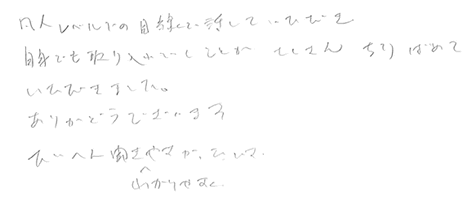 凡人レベルでの目線で話していただき
自身でも取り入れていくことが たくさん ちりばめて
いただきました。
ありがとうございます
たいへん聞きやすかったです。
わかりやすく